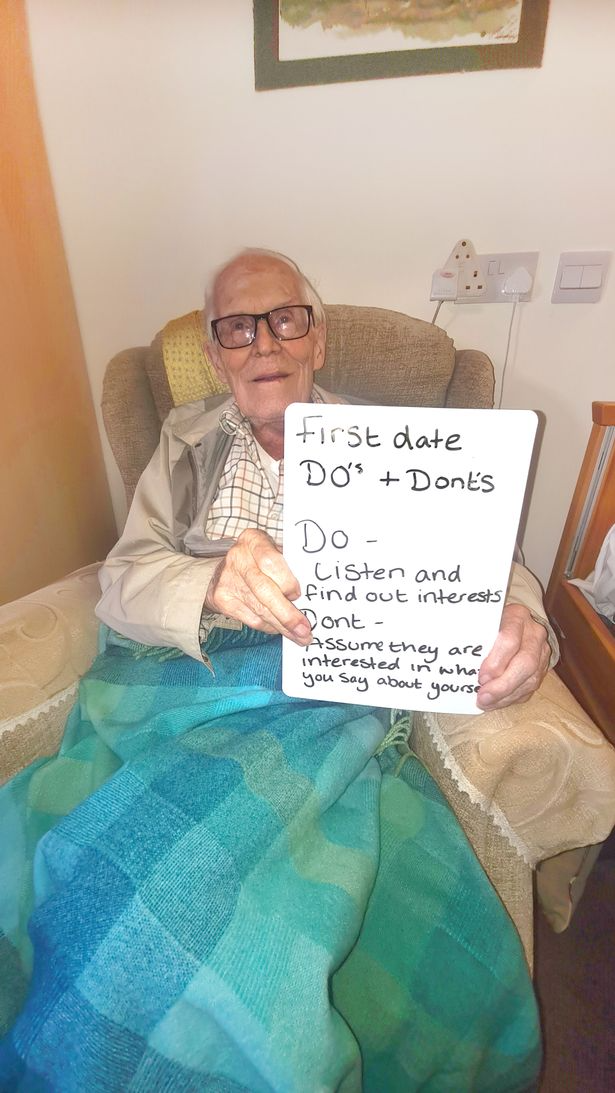 First date
DO's + Dont's
DO -
Listen and
find out interests
Dont -
Assume they are
interested in
you say about